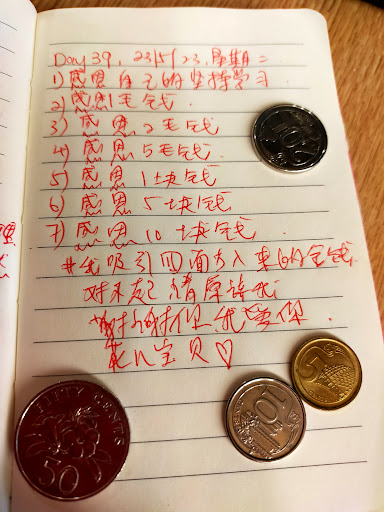 Day 39, 23/5/23, 星期二
1) 感恩自己的坚持学习
2) 感恩1毛钱.
3) 感恩2毛钱
4) 感恩5毛钱
5) 感恩1块钱
6) 感恩5块钱
7) 感恩10块钱.
#我吸引四面八入来的金钱.
对不起请原谅我
谢谢你我爱你.
宝贝♡
10
5
FIFTY CENTS
50
10